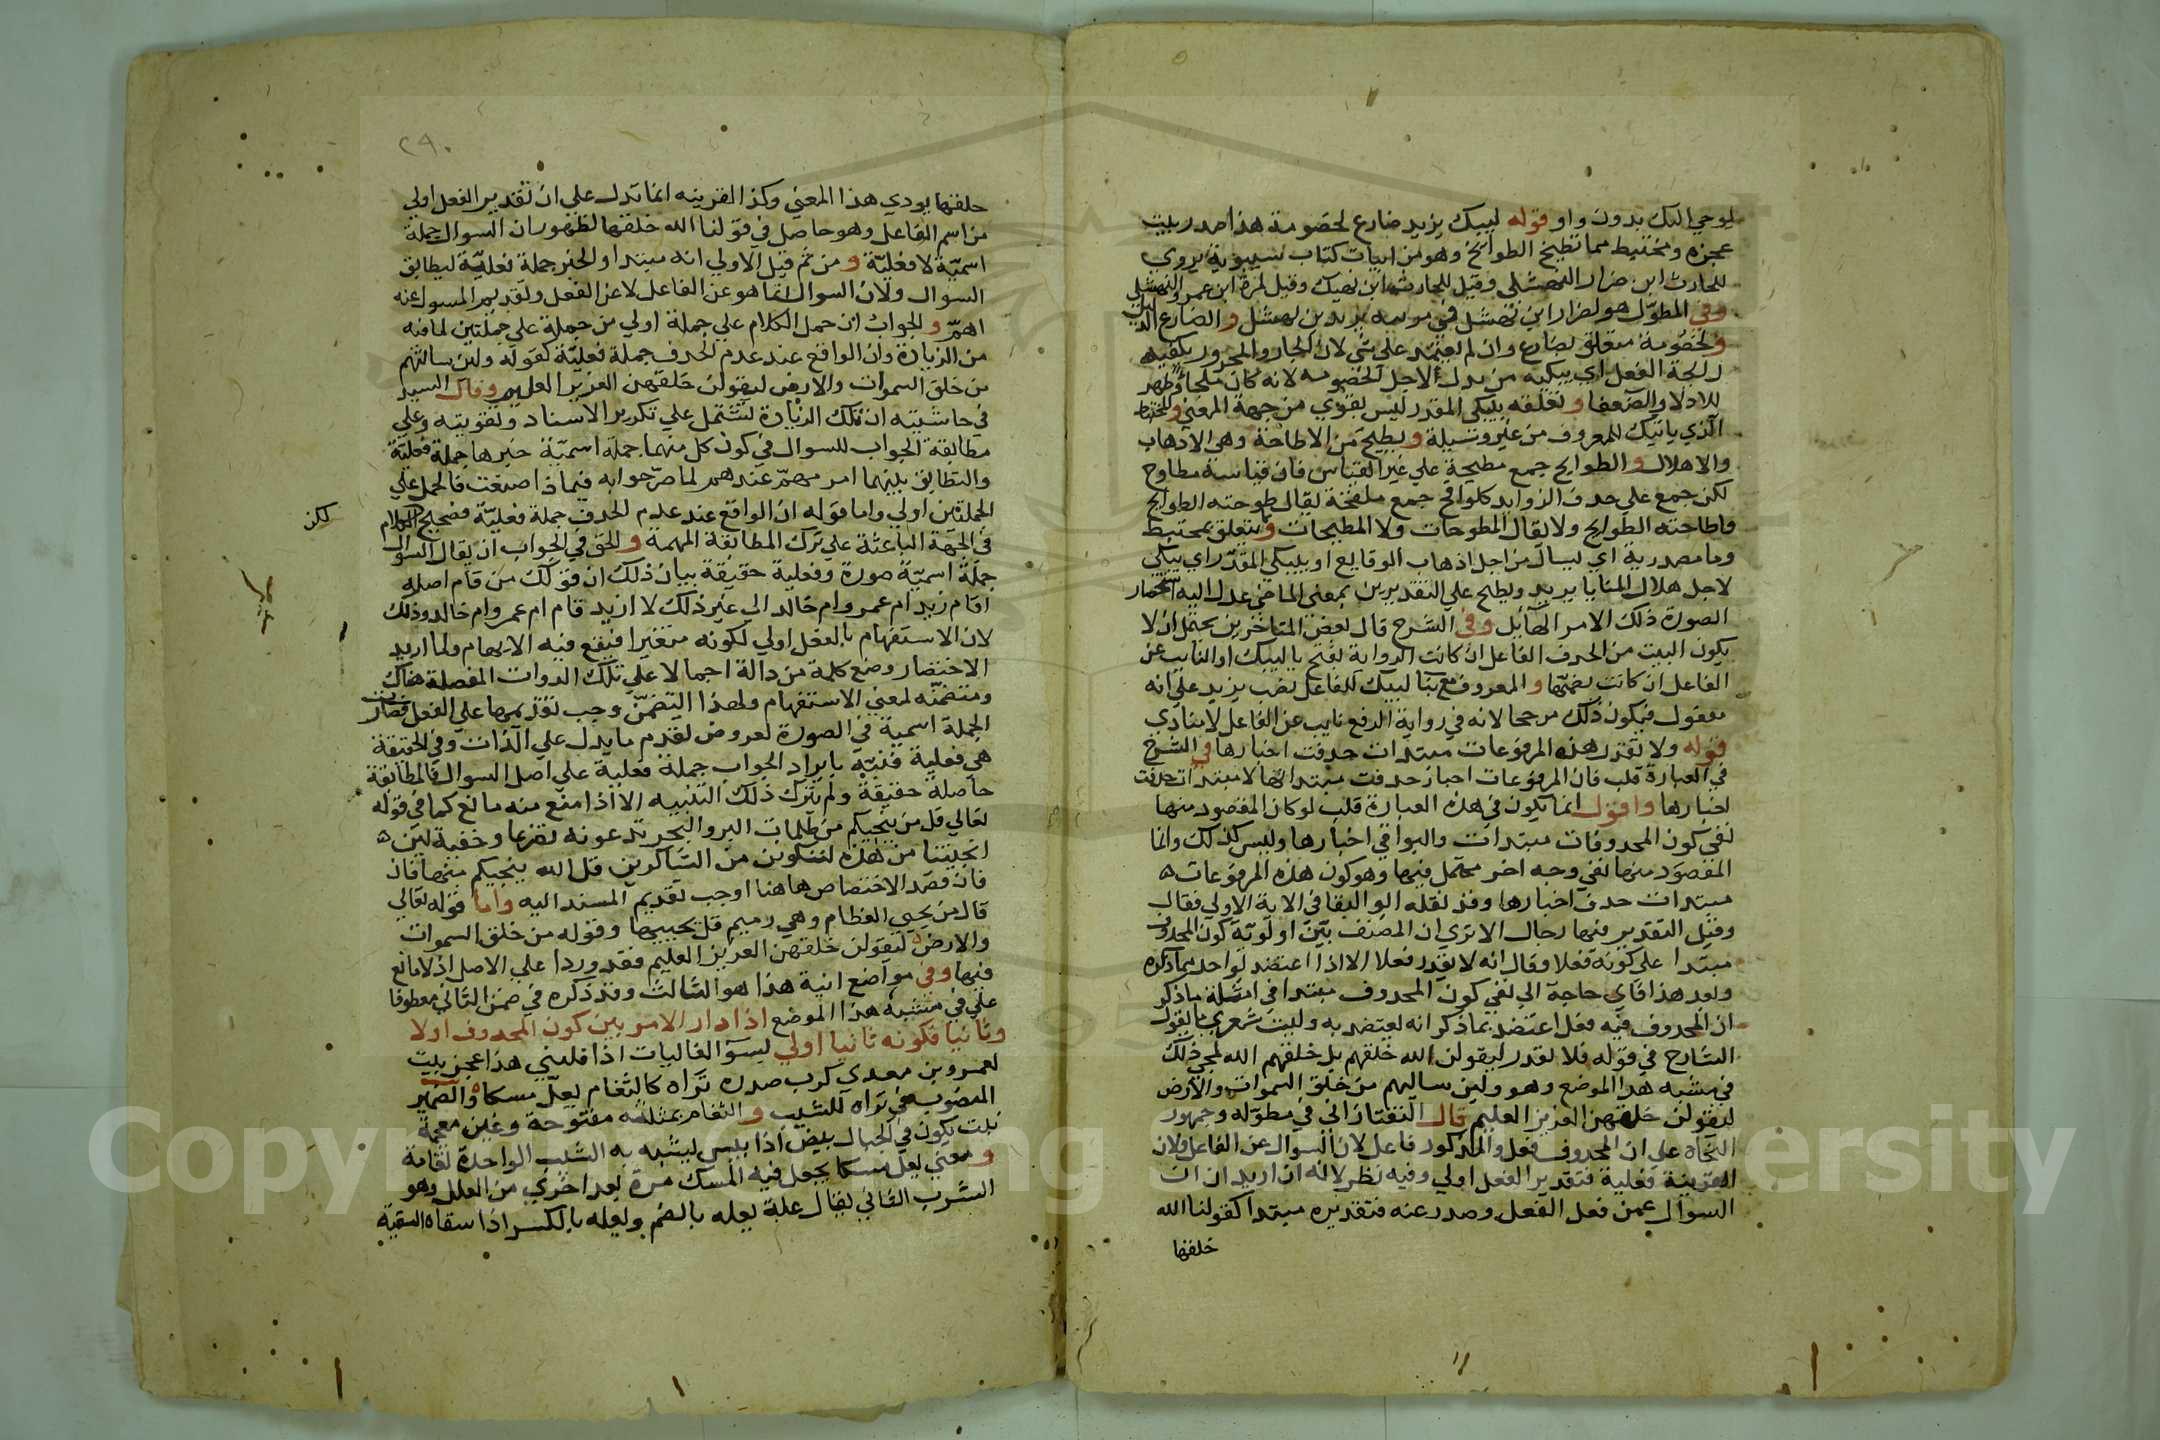 يوحي اليك بدون واو قوله لبيك يزيد ضارع لخصومة هذا صدر بيت
عجزه ومختبط مما تطيح الطوائح وهو من ابيات كتاب سيبويه يروى
للحارث ابن ضرار النهشلي وقيل للحارث ابن نهيك وقيل لمرة ابن عمرو النهشلي
وفي المطول هو لضرار ابن نهشل في مرثيه يزيد بن نهشل والضارع الذليل
ولخصومة متعلق بضارع وان لم يعتمد على شي لان الجار والمجرور يكفيه
رائحة الفعل اي يبكيه من يذل لاجل الخصومه لانه كان ملجاً وظهر
للاذلاء والضعفا وتعلقه بليبكي المقدر ليس بقوي من جهة المعنى والمختبط
الذي ياتيك للمعروف من غير وسيلة وتطيح من الاطاحة وهي الاذهاب
والاهلاك والطوايح جمع مطيحة علي غير القياس فان قياسه مطاوح
لكن جمع علي حذف الزوايد كلواقح جمع ملقحة يقال طوحته الطوايح
واطاحته الطوايح ولا يقال المطوحات ولا المطيحات ويتعلق بمختبط
وما مصدرية اي ليسال من اجل اذهاب الوقايع او بليبكي المقدر اي يبكي
لاجل هلاك المنايا يزيد وتطيح علي التقديرين بمعنى الماضي عدل اليه استحضار
الصورة ذلك الامر الهايل وفي الشرح قال بعض المتاخرين يحتمل ان لا
يكون البيت من الحذف الفاعل ان كانت الرواية بفتح يا ليبك او النايب عن
الفاعل ان كانت بضمها والمعروف مع بنا ليبك للفاعل نصب يزيد علي انه
مفعول فيكون ذلك مرجحا لانه في رواية الرفع نايب عن الفاعل لا منادي
قوله ولا تقدر هذه المرفوعات مبتدات حذفت اخبارها في الشرح
في العبارة قلب فان المرفوعات اخبار حذفت مبتداتها لا مبتدات حذفت
اخبارها واقول انما يكون في هذه العبارة قلب لو كان المقصود منها
نفي كون المحذوفات مبتدات والبواقي اخبارها وليس كذلك وانما
المقصود منها نفي وجه اخر محتمل فيها وهو كون هذه المرفوعات
مبتدات حذف اخبارها وقد نقله ابو البقا في الاية الاولي فقال
وقيل التقدير فيها رجال الا تري ان المصنف بين اولوية كون المحذوف
مبتدا علي كونه فعلا وقال انه لا يقدر فعلا الا اذا اعتضد بواحد مما ذكره
وبعد هذا فاي حاجة الي نفي كون المحذوف مبتدا في امثلة ما ذكر
ان المحذوف فيه فعل اعتضد بما ذكر انه يعتضد به وليت شعري ما يقول
الشارح في قوله فلا تقدر ليقولن الله خلقهم بل خلقهم الله لمجي ذلك
في مشبه هذا الموضع وهو ولين سالتهم من خلق السموات والارض
ليقولن خلقهن العزيز العليم قال التفتازاني في مطوله وجمهور
النحاة علي ان المحذوف فعل والمذكور فاعل لان السوال عن الفاعل ولان
القرينة فعلية فتقدير الفعل اولي وفيه نظر لانه ان اريد ان ان
السوال عمن فعل الفعل وصدر عنه فتقديره مبتدا كقولنا الله
خلقها
٢٩٠
خلقها يودي هذا المعني وكذا القرينه انما تدل علي ان تقدير الفعل اولي
من اسم الفاعل وهو حاصل في قولنا الله خلقها لظهور ان السوال جملة
اسمية لا فعلية ومن ثم قيل الاولي انه مبتدا والخبر جملة فعلية ليطابق
السوال ولان السوال انما هو عن الفاعل لا عن الفعل وتقديم المسول عنه
اهم والجواب ان حمل الكلام علي جملة اولي من حمله علي جملتين لما فيه
من الزيادة وان الواقع عند عدم الحذف جملة فعلية كقوله ولين سالتهم
من خلق السموات والارض ليقولن خلقهن العزيز العليم وقال السيد
في حاشيته ان تلك الزيادة تشتمل علي تكرير الاسناد وتقويته وعلي
مطابقة الجواب للسوال في كون كل منهما جملة اسمية خبرها جملة فعلية
والتطابق بينهما امر مهم عندهم لما صرحوا به في ماذا صنعت فالحمل علي
الجملتين اولي واما قوله ان الواقع عند عدم الحذف جملة فعلية فصحيح لكن الكلام
في الجهة الباعثة علي ترك المطابقة المهمة والحق في الجواب ان يقال السوال
جملة اسمية صورة وفعلية حقيقة بيان ذلك ان قولك من قام اصله
اقام زيد ام عمرو ام خالد الي غير ذلك لا ازيد قام ام عمرو ام خالد وذلك
لان الاستفهام بالفعل اولي لكونه متغيرا فيقع فيه الابهام ولما اريد
الاختصار وضع كلمة من دالة اجمالا علي تلك الذوات المفصلة هناك
ومتضمنه لمعني الاستفهام ولهذا التضمن وجب تقديمها علي الفعل فصارت
الجملة اسمية في الصورة لعروض تقدم ما يدل علي الذات وفي الحقيقة
هي فعلية فنبه بايراد الجواب جملة فعلية علي اصل السوال فالمطابقة
حاصلة حقيقة ولم يترك ذلك التنبيه الا اذا منع منه مانع كما في قوله
تعالي قل من ينجيكم من ظلمات البر والبحر تدعونه تضرعا وخفية لين
انجيتنا من هذه لنكونن من الشاكرين قل الله ينجيكم منها فان
فان قصد الاختصاص هاهنا اوجب تقديم المسند اليه واما قوله تعالي
قال من يحيي العظام وهي رميم قل يحييها وقوله من خلق السموات
والارض ليقولن خلقهن العزيز العليم فقد وردا علي الاصل اذ لا مانع
فيها وفي مواضع اتية هذا هو الثالث وقد ذكره في ضمن الثاني معطوفا
علي في مشبه هذا الموضع اذا دار الامر بين كون المحذوف اولا
وثانيا فكونه ثانيا اولي ليسؤ الغاليات اذا فليني هذا عجز بيت
لعمرو بن معدي كرب صدره تراه كالثغام يعل مسكا والضمير
المنصوب في تراه للشيب والثغام بمثلثه مفتوحة وغين معجمة
نبت يكون في الجبال يبيض اذا يبس ليشبه به الشيب الواحدة ثغامة
ومعني يعل مسكا يجعل فيه المسك مرة بعد اخري من العلل وهو
الشرب الثاني يقال عله يعله بالضم ويعله بالكسر اذا سقاه السقية
لكن